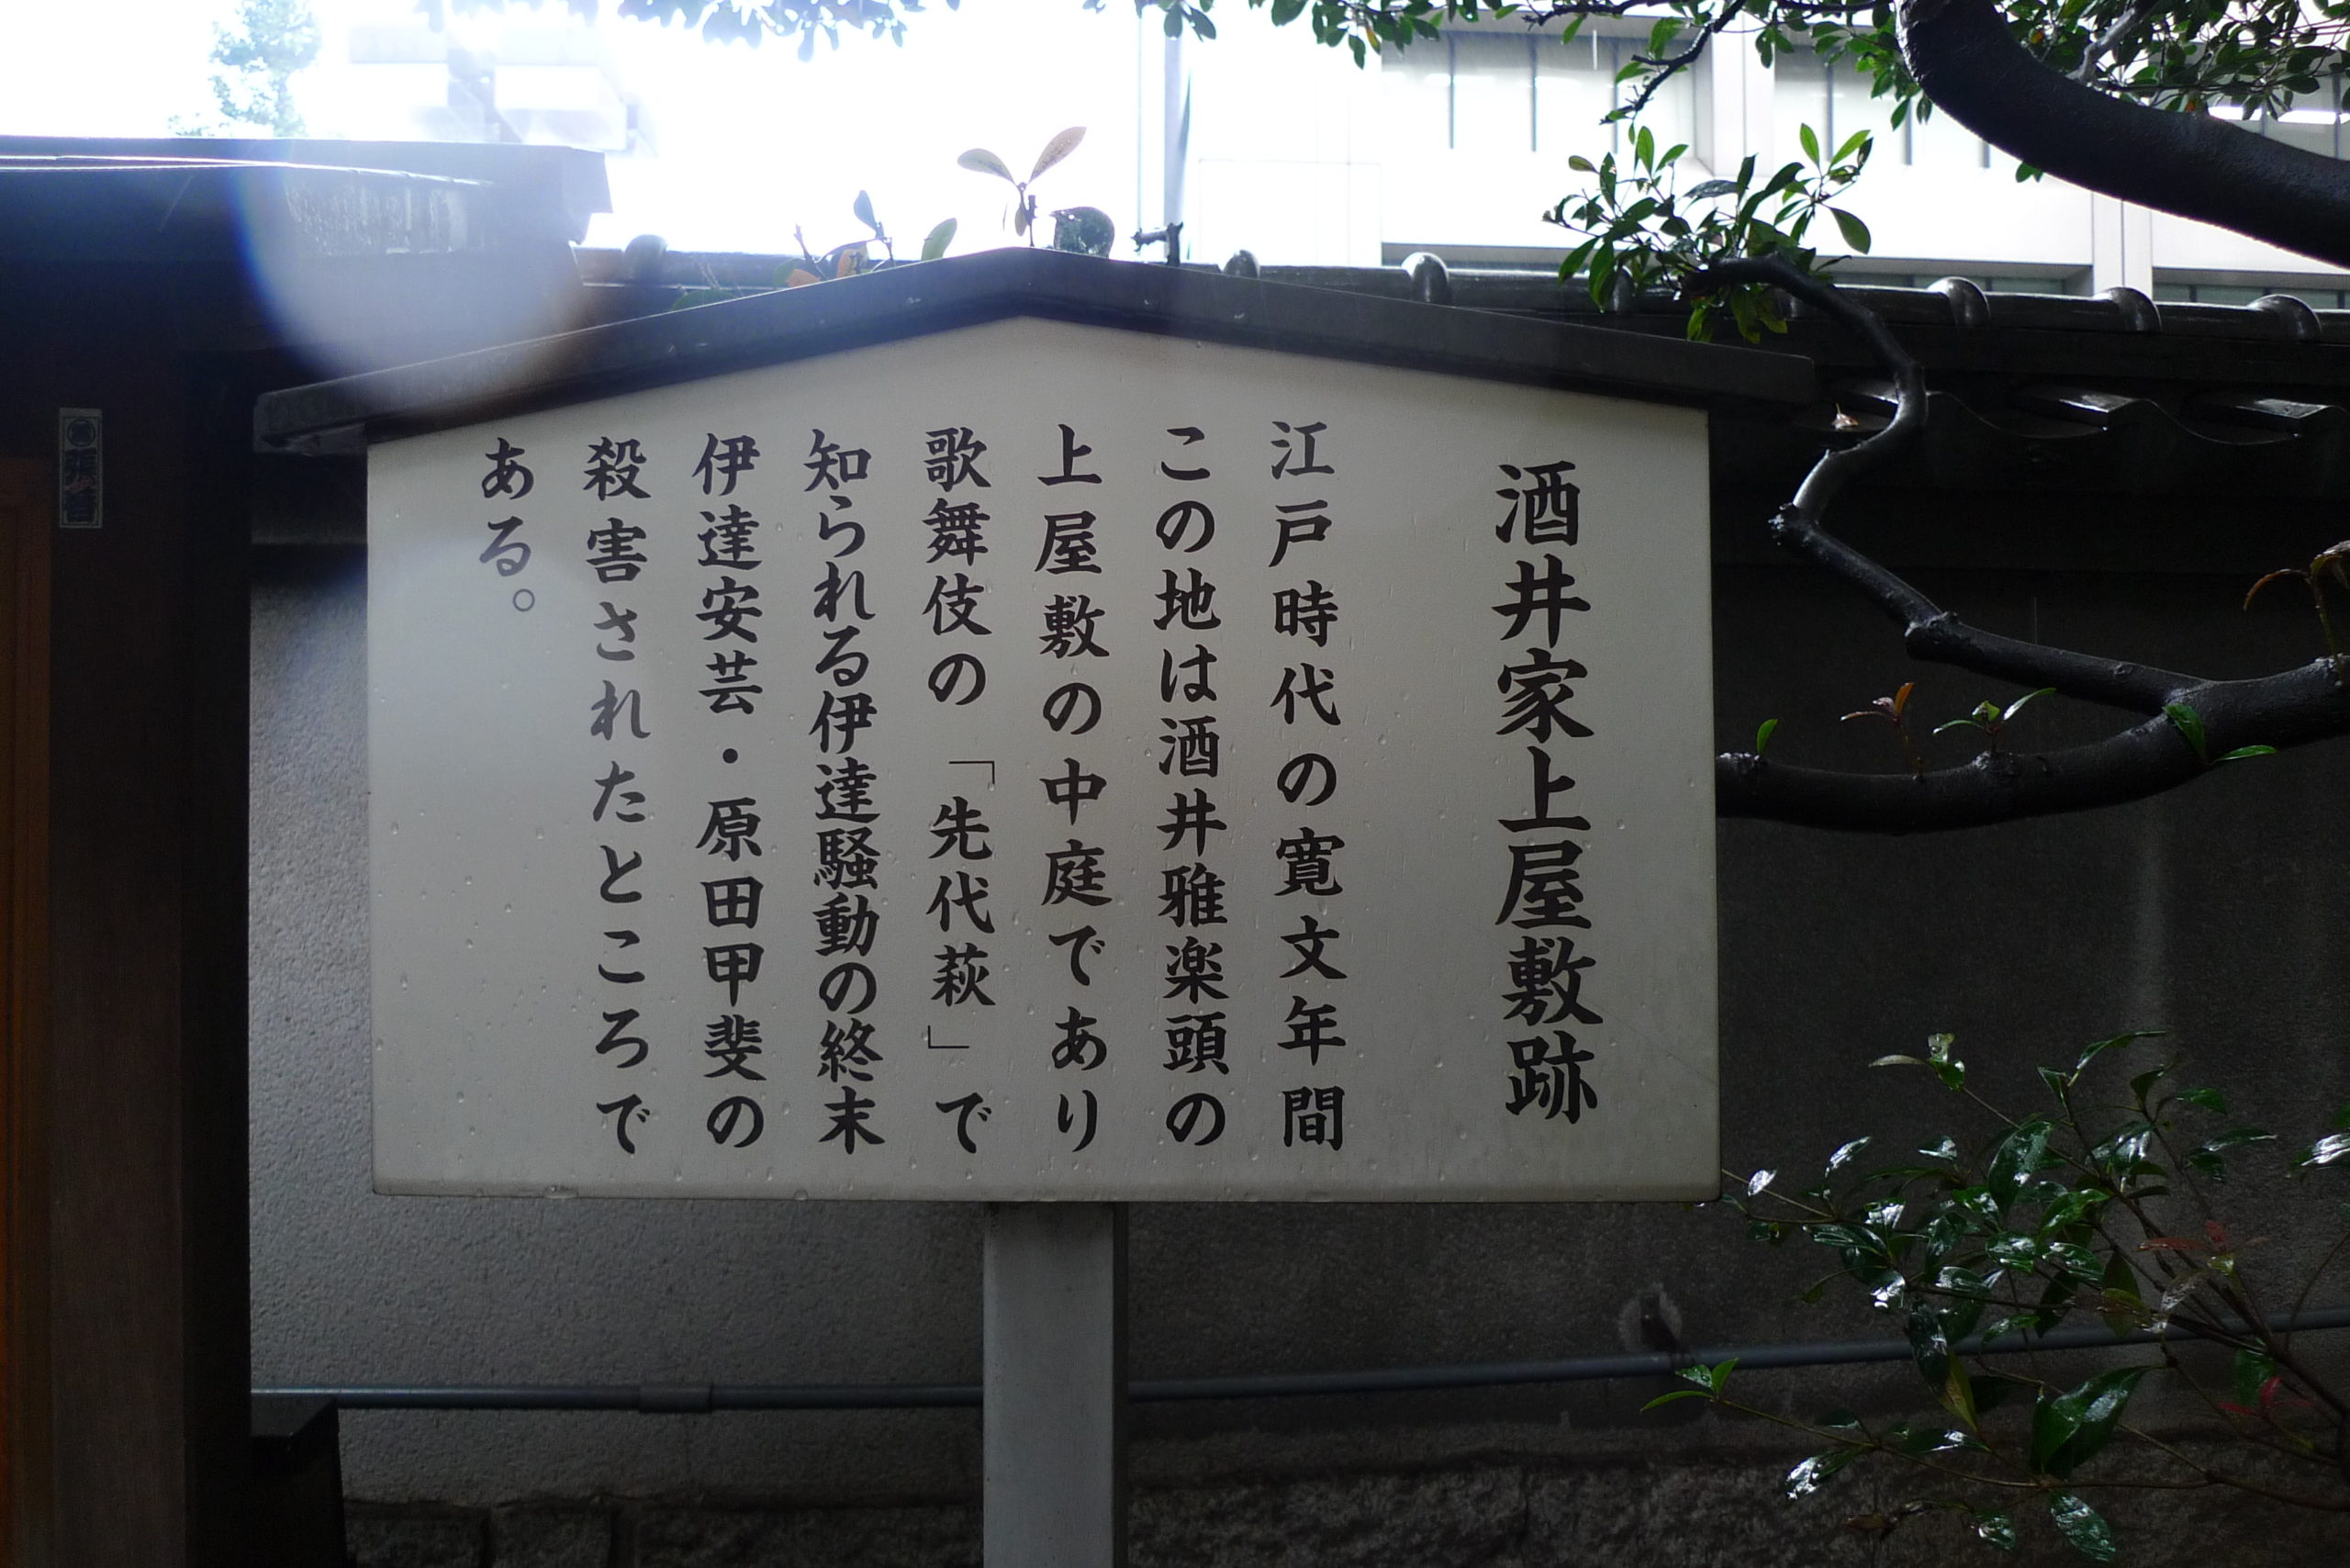 酒井家上屋敷跡
江戸時代の寛文年間
この地は酒井雅楽頭の
上屋敷の中庭であり
歌舞伎の「先代萩」で
知られる伊達騒動の終末
伊達安芸・原田甲斐の
殺害されたところで
ある。